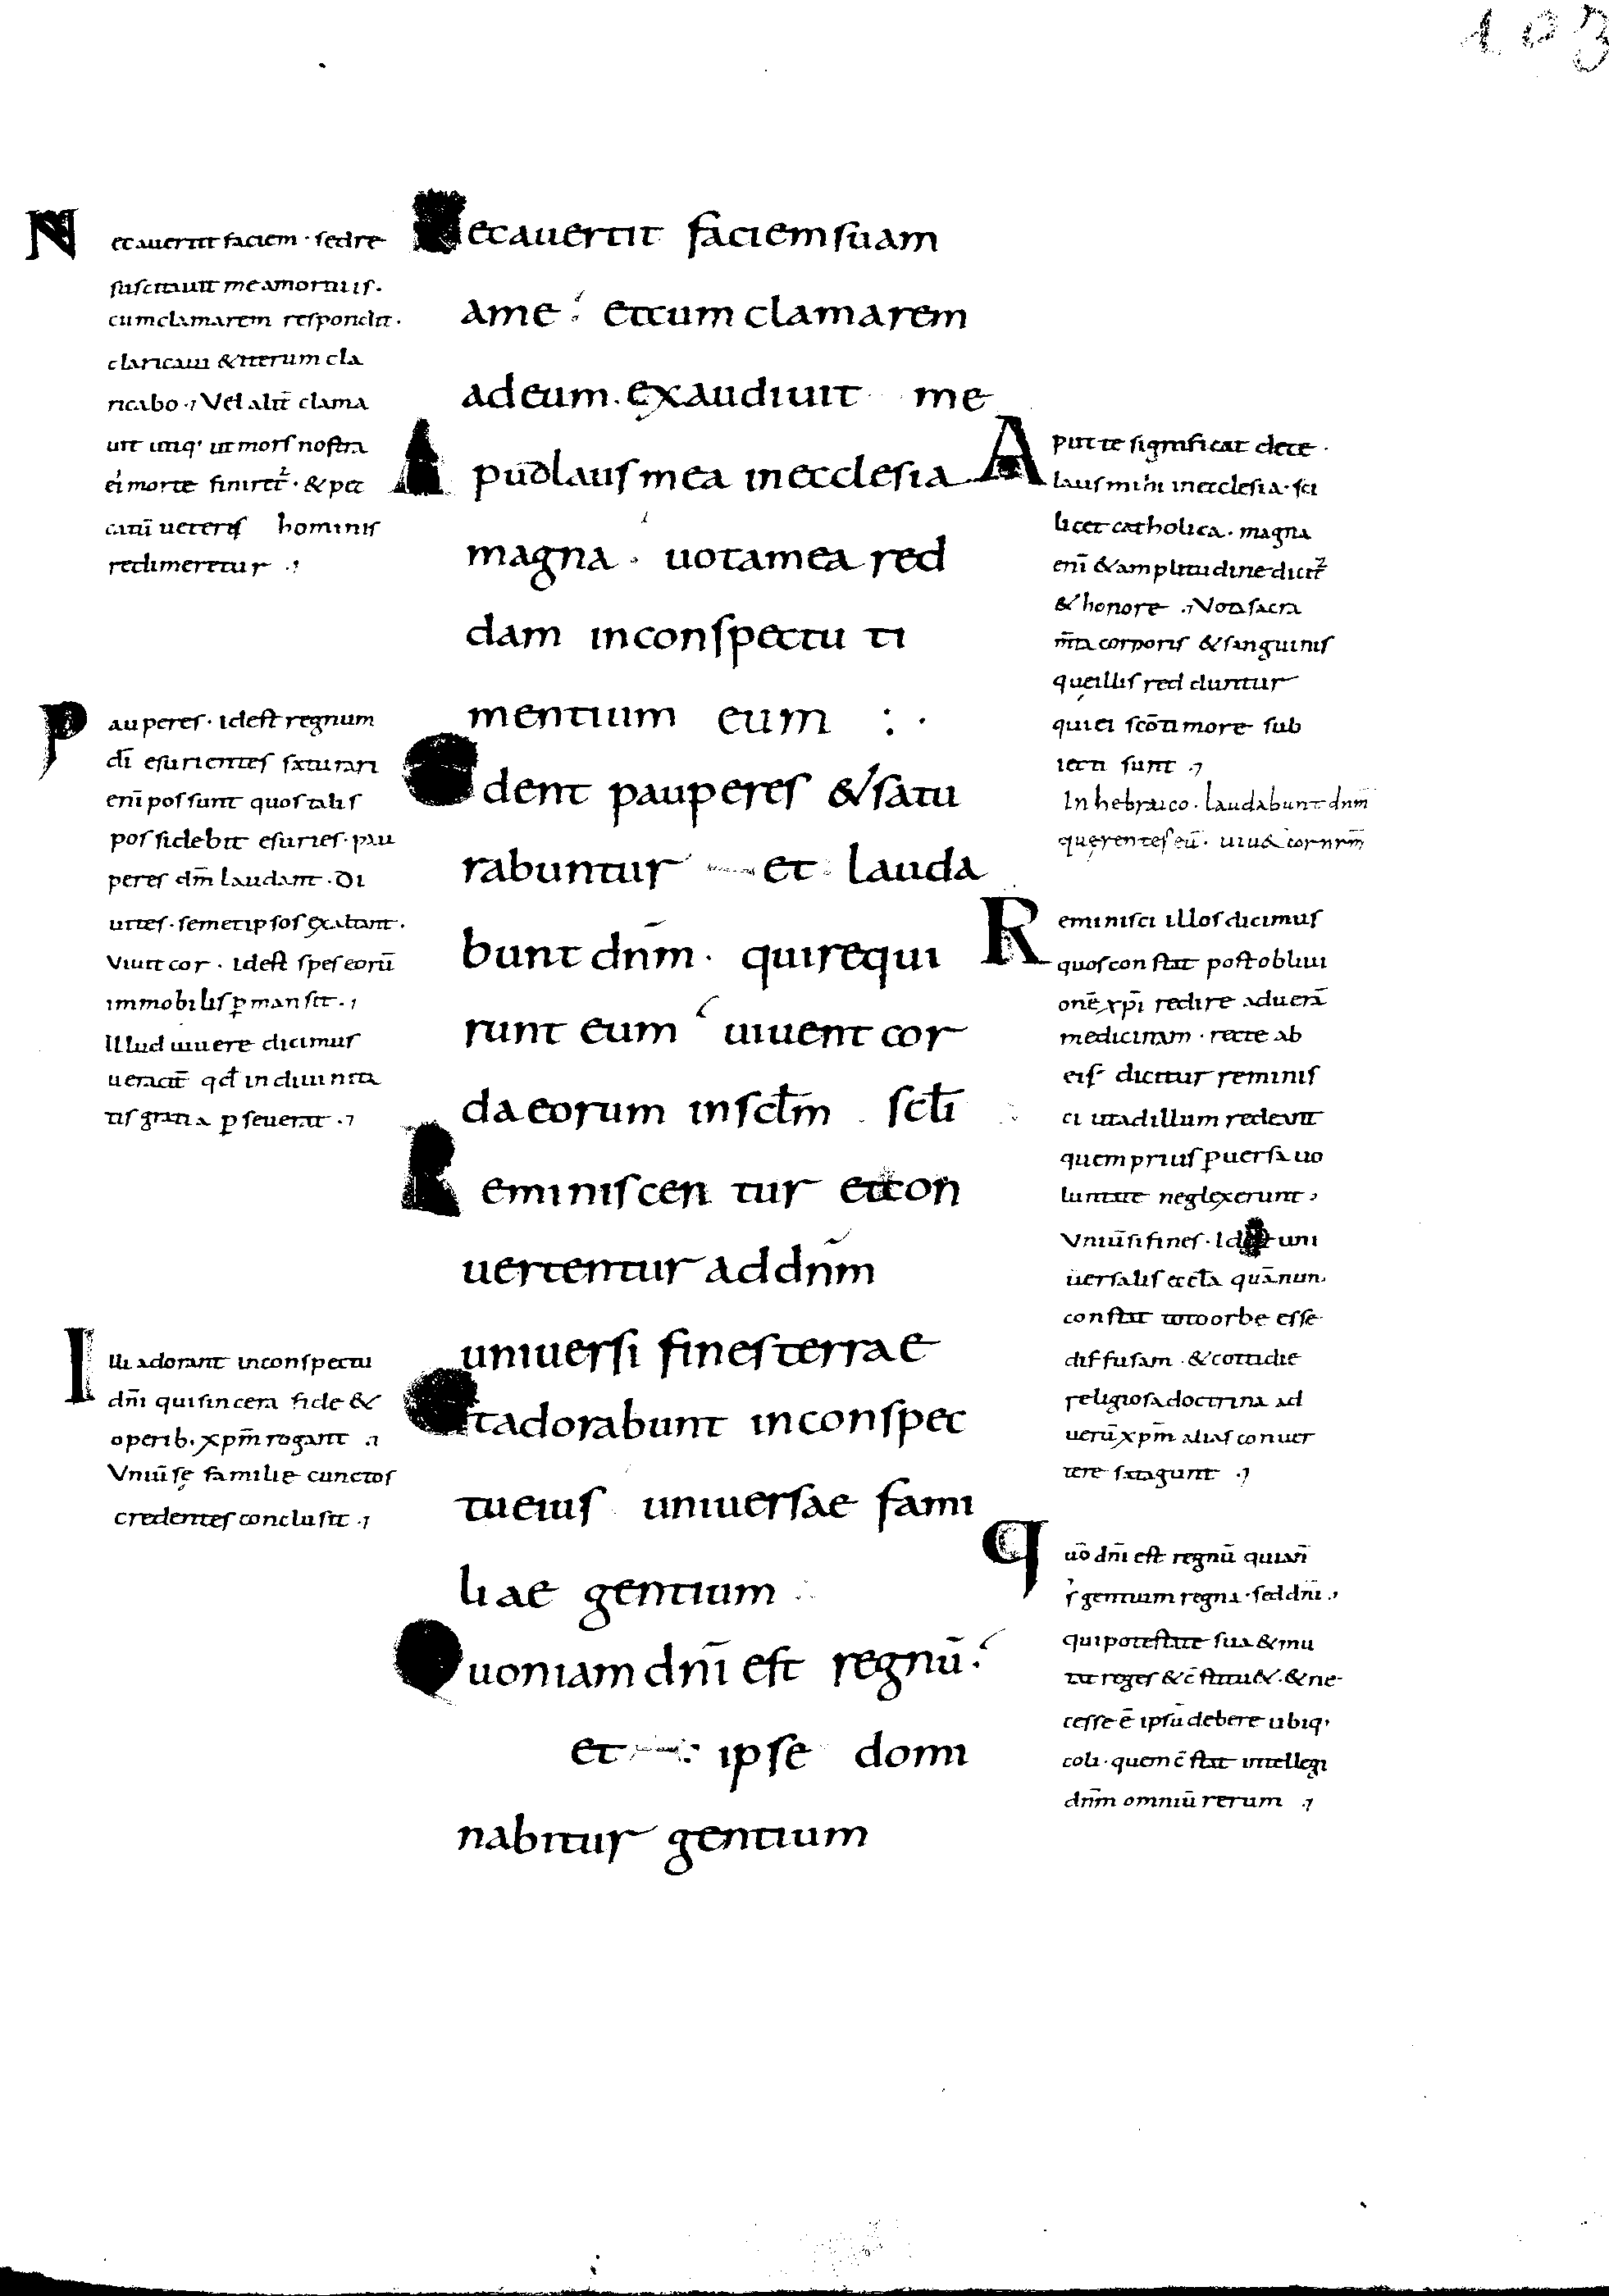 103
Nec auertit faciem · sed re
suscitauit me a mortuis ·
cum clamarem respondit ·
clarificaui & iterum cla
rificabo · Vel alit̄ clama
uit utiq; ut mors nostra
ei morte finiret᷑ · & pec
cati ueteris hominis
redimeretur ·
Pauperes · idest regnum
dī esurientes saturari
enī possunt quos talis
possidebit esuries · pau
peres dn̄m laudant · Di
uites · semetipsos exaltant ·
Viuit cor · idest spes eorū
immobilis ꝑmansit ·
Illud uiuere dicimus
ueracit̄ qđ in diuinita
tis gratia ꝑseuerat ·
Illi adorant in conspectu
dn̄i qui sincera fide &
operib· xp̄m rogant ·
Vniūsę familie cunctos
credentes conclusit ·
Nec auertit faciem suam
a me : et cum clamarem
ad eum · exaudiuit me
Apud laus mea in ecclesia
magna · uota mea red
dam in conspectu ti
mentium eum : ·
Edent pauperes & satu
rabuntur et lauda
bunt dn̄m · qui requi
runt eum uiuent cor
da eorum in sclm̄ scli̅
Reminiscentur et con
uertentur ad dn̄m
uniuersi fines terrae
Et adorabunt in conspec
tu eius uniuersae fami
liae gentium
Quoniam dn̄i est regnū ·
et ipse domi
nabitur gentium
Aput te significat de te ·
laus mihi in ecclesia · sci
licet catholica · magna
enī & amplitudine dicit᷑
& honore · Vota sacra
m̄ta corporis & sanguinis
que illis redduntur
qui ei sc̄o timore sub
iecti sunt ·
In hebraico · laudabunt dnm̄
quęrentes eū · uiu& cor nrm̄
Reminisci illos dicimus
quos constat post obliui
onē xp̄i redire ad uerā
medicinam · recte ab
eis dicitur reminis
ci ut ad illum redeant
quem prius ꝑuersa uo
luntate neglexerunt ·
Vniūsi fines · Idest uni
uersalis eccl̄a quā nun·
constat toto orbe esse
diffusam · & cottidie
religiosa doctrina ad
uerū xp̄m alias conuer
tere satagunt ·
Quō dn̄i est regnū quia n̄
s̄ gentium regna · sed dn̄i ·
qui potestate sua & mu
tat reges & c̄stitu& · & ne
cesse ē ipsū debere ubiq;
coli · quem c̄stat intellegi
dn̄m omniū rerum ·